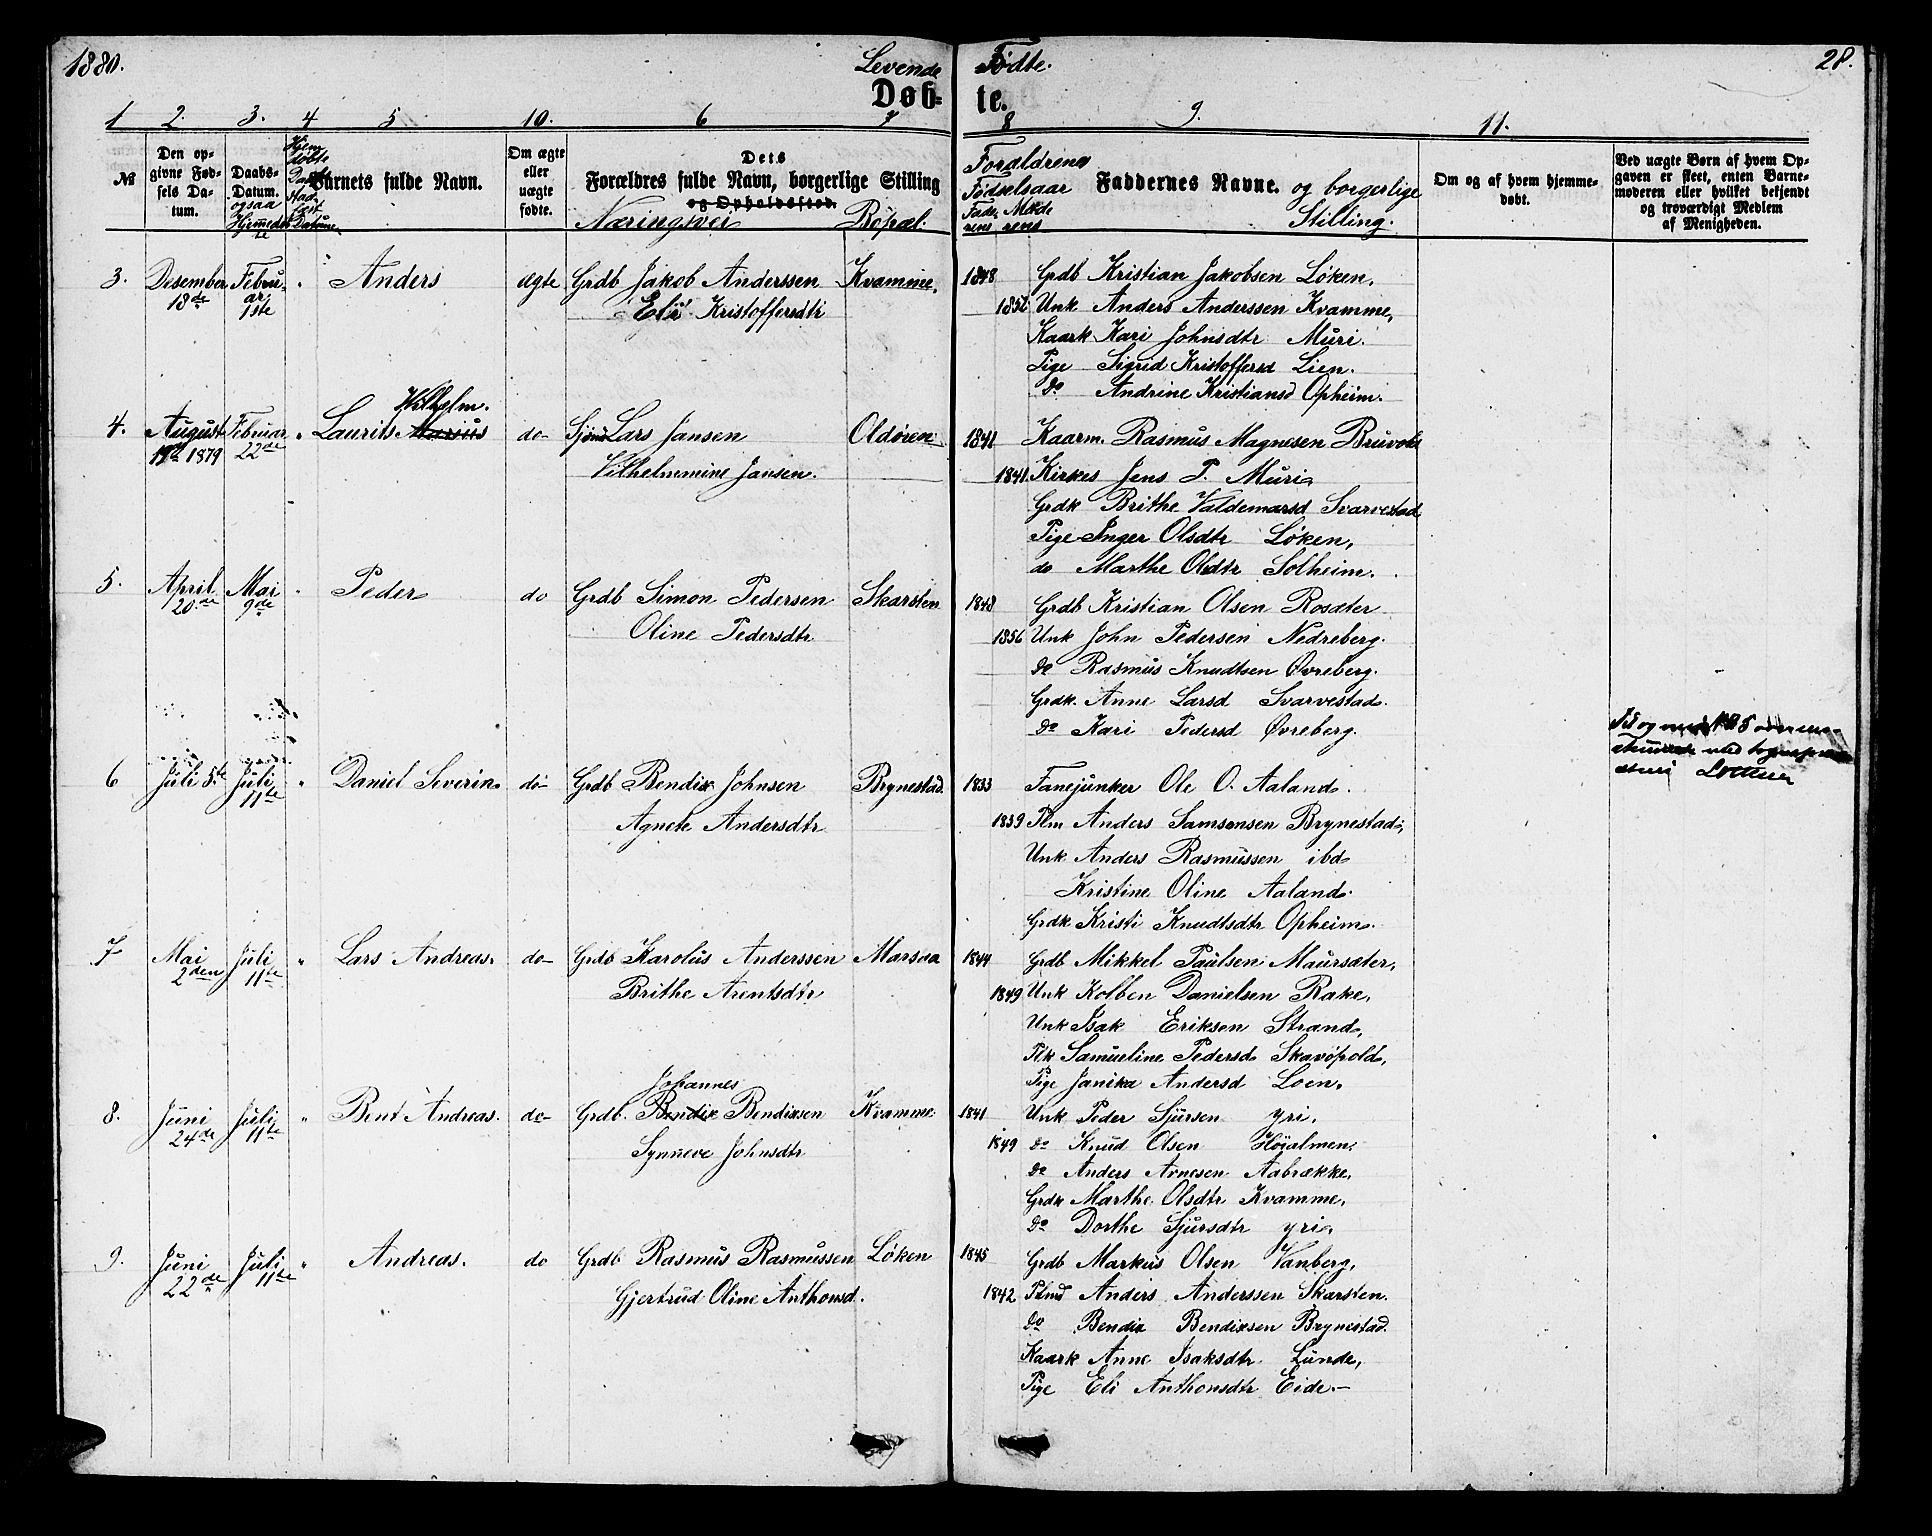 1880. Levende Fødte. 28.
Døb- te.
1 2. 3. 4 5 10. 6 7 8 9. 11.
№
Den op-
givne Fød-
sels Da-
tum.
Daabs-
Datum.
ogsaa
Hjemmedøb
te
Hjem
døbte
Daabs
stad-
fæst.
Datum
Barnets fulde Navn.
Om ægte
eller
uægte
fødte.
Dets
Forældres fulde Navn, borgerlige Stilling
og Opholdssted.
Næringsvei Bopæl.
Forældrenes
Fødselsaar
Fade- Mode
rens rens
Faddernes Navne. og borgerlige
Stilling.
Om og af hvem hjemme-
døbt.
Ved uægte Børn af hvem Op-
gaven er skeet, enten Barne-
moderen eller hvilket bekjendt
og troværdigt Medlem
af Menigheden.
3. Desember Febru- " Anders ægte Grdb Jakob Anderssen Kvamme. 1848 Grdb Kristian Jakobsen Løken.
18de ar 1ste Eli Kristoffersdtr 1852 Unk Anders Anderssen Kvamme,
Kaark Kari Johnsdtr Muri.
Pige Sigrid Kristoffersd Lien.
do Andrine Kristiansd Opheim.
Vilhelm.
4. August Februar " Laurits Marius do- Sjømd Lars Jansen Oldøren 1841 Kaarm. Rasmus Magnesen Bruvold
1879 22de Vilhelmmine Jansen. 1841. Kirkes Jens P. Muri
Grdk Brithe Valdemarsd Svarvestad
Pige Inger Olsdtr Løken,
do Marthe Olsdtr Solheim.
5. April Mai " Peder do Grdb Simon Pedersen Skarsten 1848 Grdb Kristian Olsen Rosæter
20de 9de Oline Pedersdtr 1856 Unk John Pedersen Nedreberg.
do Rasmus Knudtsen Øvreberg.
Grdk. Anne Larsd Svarvestad.
do Kari Pedersd Øvreberg.
6 Juli 5te Juli " Daniel Severin do- Grdb Bendix Johnsen Brynestad. 1833 Fanejunker Ole O. Aaland.
11te Agnete Andersdtr 1839 Plm Anders Samsonsen Brynestad,
Unk Anders Rasmussen ibd
Kristine Oline Aaland.
Grdk Kristi Knudtsdtr Opheim.
7 Mai Juli " Lars Andreas. do- Grdb Karolus Anderssen Marsaa 1844 Grdb Mikkel Paulsen Maursæter,
2den 11te Brithe Arentsdtr 1849 Unk Kolben Danielsen Rake,
Unk Isak Eriksen Strand,
Plk Samueline Pedersd Skavøpold,
Pige Janika Andersd Loen.
Johannes
8. Juni Juli " Bent Andreas. do- Grdb. Bendix Bendixsen Kvamme 1841 Unk Peder Sjursen yri.
24de 11te Synneve Johnsdtr 1849 do Knud Olsen Høialmen.
do Anders Arnesen Aabrække,
Grdk Marthe Olsdtr Kvamme,
do Dorthe Sjursdtr yri,
9. Juni Juli " Andreas. do Grdb Rasmus Rasmussen Løken 1845 Grdb Markus Olsen Vanberg,
22de 11te Gjertrud Oline Anthonsd. 1842 Plmd Anders Anderssen Skarsten.
do Bendix Bendixsen Brynestad.
Kaark Anne Isaksdtr Lunde,
Pige Eli Anthonsdtr Eide.-